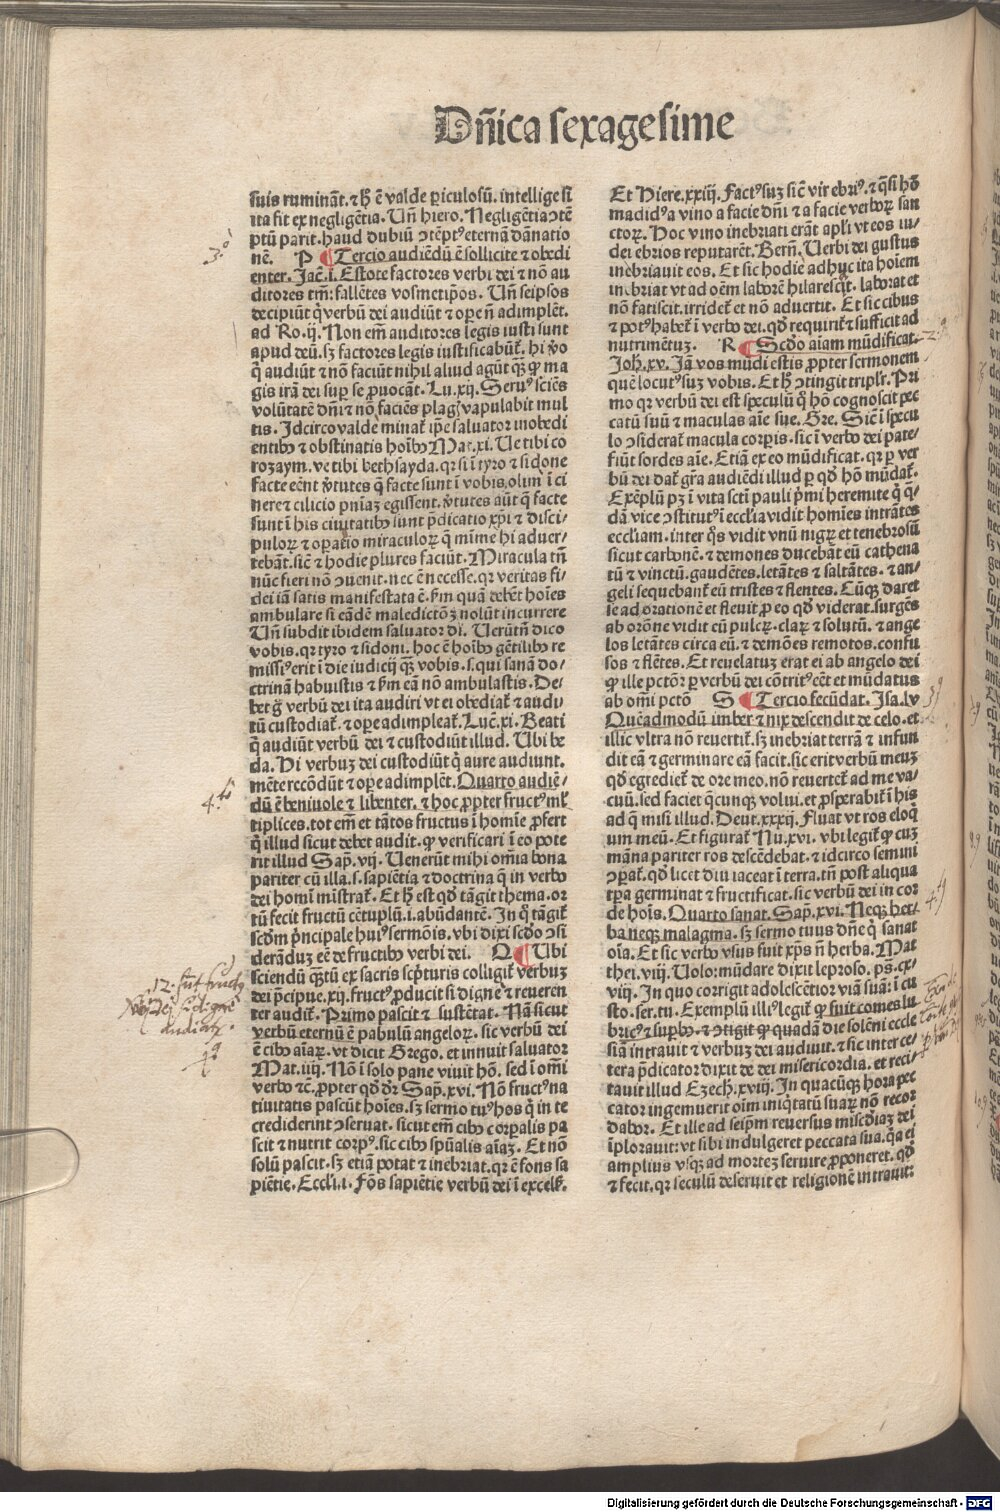 Dñica sexagesime
suis rumināt. ⁊ hͦ ē valde ꝑiculosū. intellige si
ita fit ex negligētia. Uñ hiero. Negligētia ↄtē
ptū parit. haud dubiū ↄtēptꝰ eternā dānatio
nē. P ¶ Tercio audiēdū ē sollicite ⁊ obedi
enter. Jac̄. i. Estote factores verbi dei ⁊ nō au
ditores tm̄: fallētes vosmetip̄os. Uñ seipsos
decipiūt q̇ verbū dei audiūt ⁊ opeꝛe nō adimplēt.
ad Ro. ij. Non em̄ auditores legis iusti sunt
apud deū. sꝫ factores legis iustificabūt᷑. hi v̊o
q̇ audiūt ⁊ nō faciūt nihil aliud agūt q̄ꝫ ꝙ ma
gis irā dei suꝑ se ꝓuocāt. Lu. xij. Seruꝰ sciēs
volūtatē dn̄i ⁊ nō faciēs plagꝭ vapulabit mul
tis. Idcirco valde minat᷑ ip̄e saluator inobedi
entibꝰ ⁊ obstinatis hoībꝰ Mat. xi. Ue tibi co
rozaym. ve tibi bethsayda. qꝛ si ī tyro ⁊ sidone
facte eēnt v̓tutes q̄ facte sunt ī vobis. olim ī ci
nere ⁊ cilicio pn̄iaꝫ egissent. v̓tutes aūt q̄ facte
sunt ī his ciuitatibꝰ sunt p̄dicatio xp̄i ⁊ disci⸗
pulorꝝ ⁊ oꝑatio miraculorꝝ q̄ mīme hi aduer⸗
tebāt. sic̄ ⁊ hodie plures faciūt. Miracula tn̄
nūc fieri nō ↄuenit. nec ē necesse. qꝛ veritas fi⸗
dei iā satis manifestata ē. ẜm quā debēt hoīes
ambulare si eādē maledictōꝫ nolūt incurrere
Uñ subdit ibidem saluator di. Uerūtn̄ dico
vobis. qꝛ tyro ⁊ sidoni. hoc ē hoībꝰ gētilibꝰ re
missiꝰ erit ī die iudicij q̄ꝫ vobis. s. qui sanā do⸗
ctrinā habuistis ⁊ ẜm eā nō ambulastis. De⸗
bet g̊ verbū dei ita audiri vt ei obediat᷑ ⁊ audi⸗
tū custodiat᷑. ⁊ ope adimpleat᷑. Luc̄. xi. Beati
q̇ audiūt verbū dei ⁊ custodiūt illud. Ubi be
da. Hi verbuꝫ dei custodiūt q̇ aure audiunt.
mēte recōdūt ⁊ ope adimplēt. Quarto audiē⸗
dū ē beniuole ⁊ libenter. ⁊ hoc ꝓpter fructꝰ ml̓
tiplices. tot em̄ ⁊ tātos fructus ī homīe ꝓfert
q̇ illud sicut debet audit. ꝙ verificari ī eo pote
rit illud Sap̄. vij. Uenerūt mihi om̄ia bona
pariter cū illa. s. sapiētia ⁊ doctrina q̄ in verbo
dei homī mīstrat᷑. Et hͦ est qd̓ tāgit thema. or
tū fecit fructū cētuplū. i. abūdantē. In q̇ tāgit᷑
scd̓m p̓ncipale huiꝰ sermōis. vbi dixi scd̓o ↄsi
derādūꝫ eē de fructibꝰ verbi dei. Q ¶ Ubi
sciendū q̄ꝫtū ex sacris scp̓turis colligit᷑ verbuꝫ
dei p̄cipue. xij. fructꝰ ꝓducit si digne ⁊ reueren
ter audit᷑. Primo pascit ⁊ sustētat. Nā sicut
verbū eternū ē pabulū angelorꝝ. sic verbū dei
ē cibꝰ aīarꝝ. vt dicit Grego. et innuit saluator
Mat. iiij. Nō ī solo pane viuit hō. sed ī om̄i
verbo ⁊c̄. ꝓpter qd̓ dr̄ Sap̄. xvi. Nō fructꝰ na
tiuitatis pascūt hoīes. sꝫ sermo tuꝰ hos q̇ in te
crediderint ↄseruat. sicut em̄ cibꝰ corꝑalis pa
scit ⁊ nutrit corpꝰ. sic cibꝰ sp̄ualis aīaꝫ. Et nō
solū pascit. sꝫ etiā potat ⁊ inebriat. qꝛ ē fons sa
piētie. Eccl̓i. i. Fōs sapiētie verbū dei ī excels̄.
Et Hiere. xxiij. Factꝰ suꝫ sic̄ vir ebriꝰ. ⁊ q̄si hō
madidꝰ a vino a facie dn̄i ⁊ a facie verborꝝ san
ctorꝝ. Hoc vino inebriati erāt apl̓i vt eos iu⸗
dei ebrios reputarēt. Bern̄. Uerbi dei gustus
inebriauit eos. Et sic hodie adhuc ita hoīem
inebriat vt ad oēm laborē hilarescat. laborat et
nō fatiscit. irridet᷑ et nō aduertit. Et sic cibus
⁊ potꝰ habet᷑ ī verbo dei. qd̓ requirit᷑ ⁊ sufficit ad
nutrimētuꝫ. R ¶ Scd̓o aīam mūdificat.
Joh̄. xv. Jā vos mūdi estis ꝓpter sermonem
quē locutꝰ suꝫ vobis. Et hͦ ↄtingit tripl̓r. Pri
mo qꝛ verbū dei est speculū q̇ hō cognoscit pec
catū suū ⁊ maculas aīe sue. Gre. Sic̄ ī specu
lo ↄsiderat᷑ macula corꝑis. sic ī verbo dei pate⸗
fiūt sordes aīe. Etiā ex eo mūdificat. qꝛ ꝑ ver
bū dei dat᷑ gr̄a audiēdi illud ꝑ qd̓ hō mūdat᷑.
Exēplū pꝫ ī vita scti pauli p̓mi heremite q̇ q̄⸗
dā vice ↄstitutꝰ ī eccl̓ia vidit homīes intrātes
eccl̓iam. inter q̇s vidit vnū nigrꝝ et tenebrosū
sicut carbonē. ⁊ demones ducebāt eū cathena
tū ⁊ vinctū. gaudētes. letātes ⁊ saltātes. ⁊ an⸗
geli sequebant᷑ eū tristes ⁊ flentes. Cūqꝫ daret
se ad orationē et fleuit ꝓ eo qd̓ viderat. surgēs
ab orōne vidit eū pulcrꝝ. clarꝝ ⁊ solutū. ⁊ ange
los letātes circa eū. ⁊ demōes remotos. confu
sos ⁊ flētes. Et reuelatuꝫ erat ei ab angelo dei
ꝙ ille pctōr ꝑ verbū dei cōtritꝰ eēt et mūdatus
ab om̄i pctō S ¶ Tercio fecūdat. Isa. lv
Quēadmodū imber ⁊ nix descendit de celo. et
illic vltra nō reuertit᷑. sꝫ inebriat terrā ⁊ infun
dit eā ⁊ germinare eā facit. sic erit verbū meuꝫ
qd̓ egrediet᷑ de ore meo. nō reuertet᷑ ad me va⸗
cuū. sed faciet q̄cunqꝫ volui. et ꝓsperabit᷑ ī his
ad q̄ misi illud. Deut. xxxij. Fluat vt ros eloq̇
um meū. Et figurat᷑ Nu. xvi. vbi legit᷑ ꝙ cuꝫ
māna pariter ros descēdebat. ⁊ idcirco semini
ↄparat᷑. qd̓ licet diu iaceat ī terra. tn̄ post aliqua
tꝑa germinat ⁊ fructificat. sic verbū dei in cor
de hoīs. Quarto sanat. Sap̄. xvi. Neqꝫ her⸗
ba neqꝫ malagma. sꝫ sermo tuus dn̄e q̇ sanat
oīa. Et sic verbo vsus fuit xp̄s n̄ herba. Mat
thei. viij. Uolo: mūdare dixit leproso. ps̄. cx⸗
viij. In quo corrigit adolescētior viam suā: ī cu
sto. ser. tu. Exemplū illiꝰ legit᷑ ꝙ fuit comes lu
bricꝰ ⁊ suꝑbꝰ. ⁊ ↄtigit ꝙ quadā die solēni eccle
siā intrauit ⁊ verbuꝫ dei audiuit. ⁊ sic inter ce⸗
tera p̄dicator dixit de dei misericordia. et reci⸗
tauit illud Ezech̄. xviij. In quacūqꝫ hora pec
cator ingemuerit oīm iniq̇tatū suarꝝ nō recor
dabor. Et ille ad seip̄m reuersus miscd̓iaꝫ dei
īplorauit: vt sibi indulgeret peccata sua. q̄a ei
amplius vsqꝫ ad morteꝫ seruire ꝓponeret. qd̓
⁊ fecit. qꝛ seculū deseruit et religionē intrauit:
3ͦ
4ͭͦ
12. sūt fructꝰ
verbi dei si digne
audiat᷑.
1ꝰ
2ꝰ
3ꝰ
4ꝰ
Digitalisierung gefördert durch die Deutsche Forschungsgemeinschaft - DFG